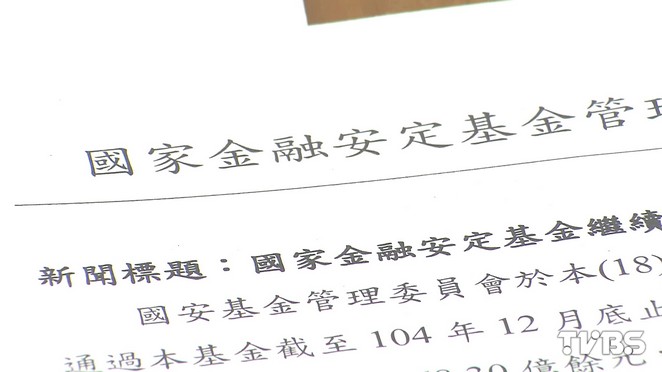 國家金融安定基金管
新聞標題：國家金融安定基金繼續
國安基金管理委員會於本(18)
通過本基金截至 104 年 12 月底止
億餘元
TVBS